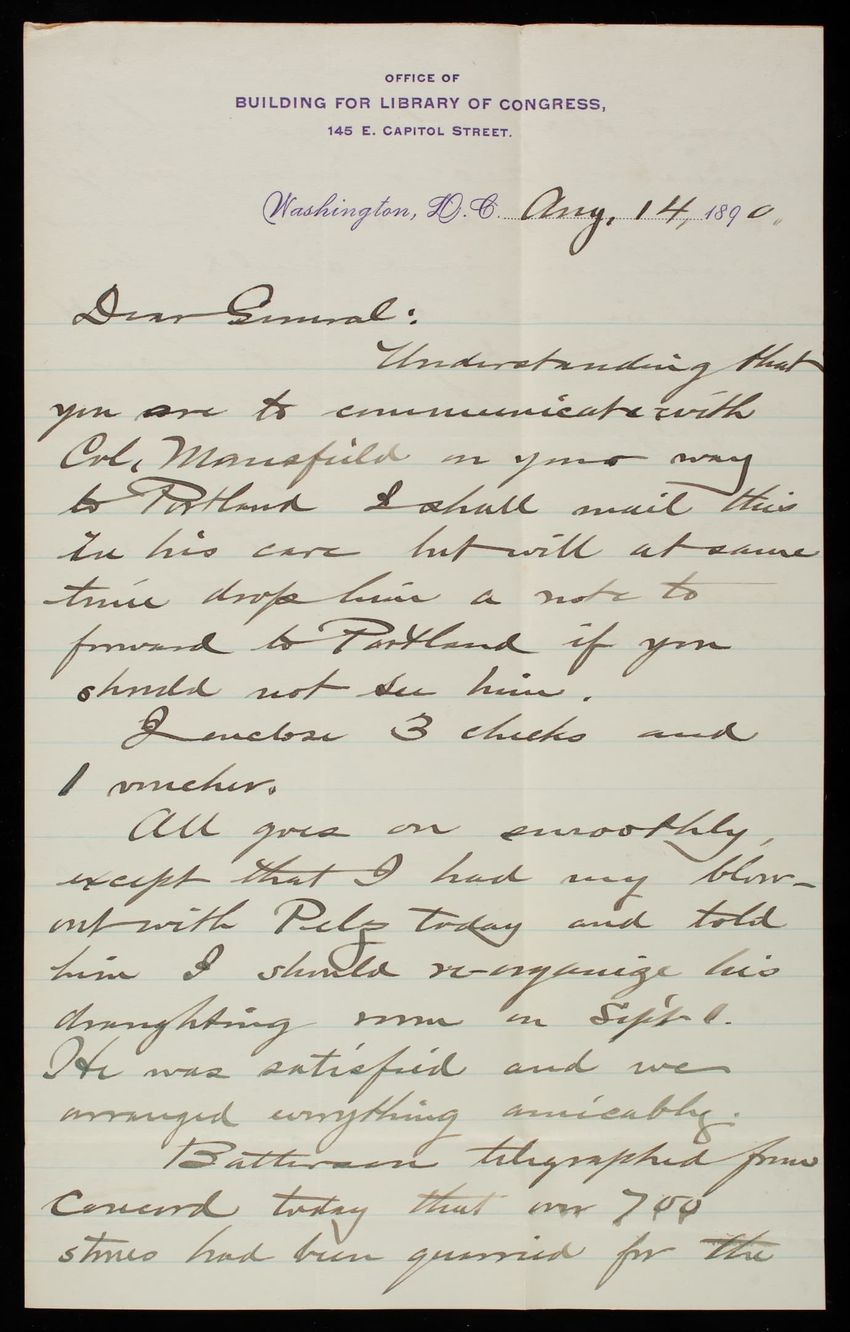 OFFICE OF
BUILDING FOR LIBRARY OF CONGRESS,
145 E. CAPITOL STREET.
Washington, D.C. Aug. 14, 1890.
Dear General:
Understanding that
you are to communicate with
Col. Mansfield on your way
to Portland I shall mail this
in his care but will at same
time drop him a note to
forward to Portland if you
should not see him.
I enclose 3 checks and
1 voucher.
All goes on smoothly,
except that I had my blow-
out with Pelz today and told
him I should re-organize his
draughting room on Sept 1.
He was satisfied and we
arranged everything amicably.
Batterson telegraphed from
Concord today that over 700
stones had been quarried for the